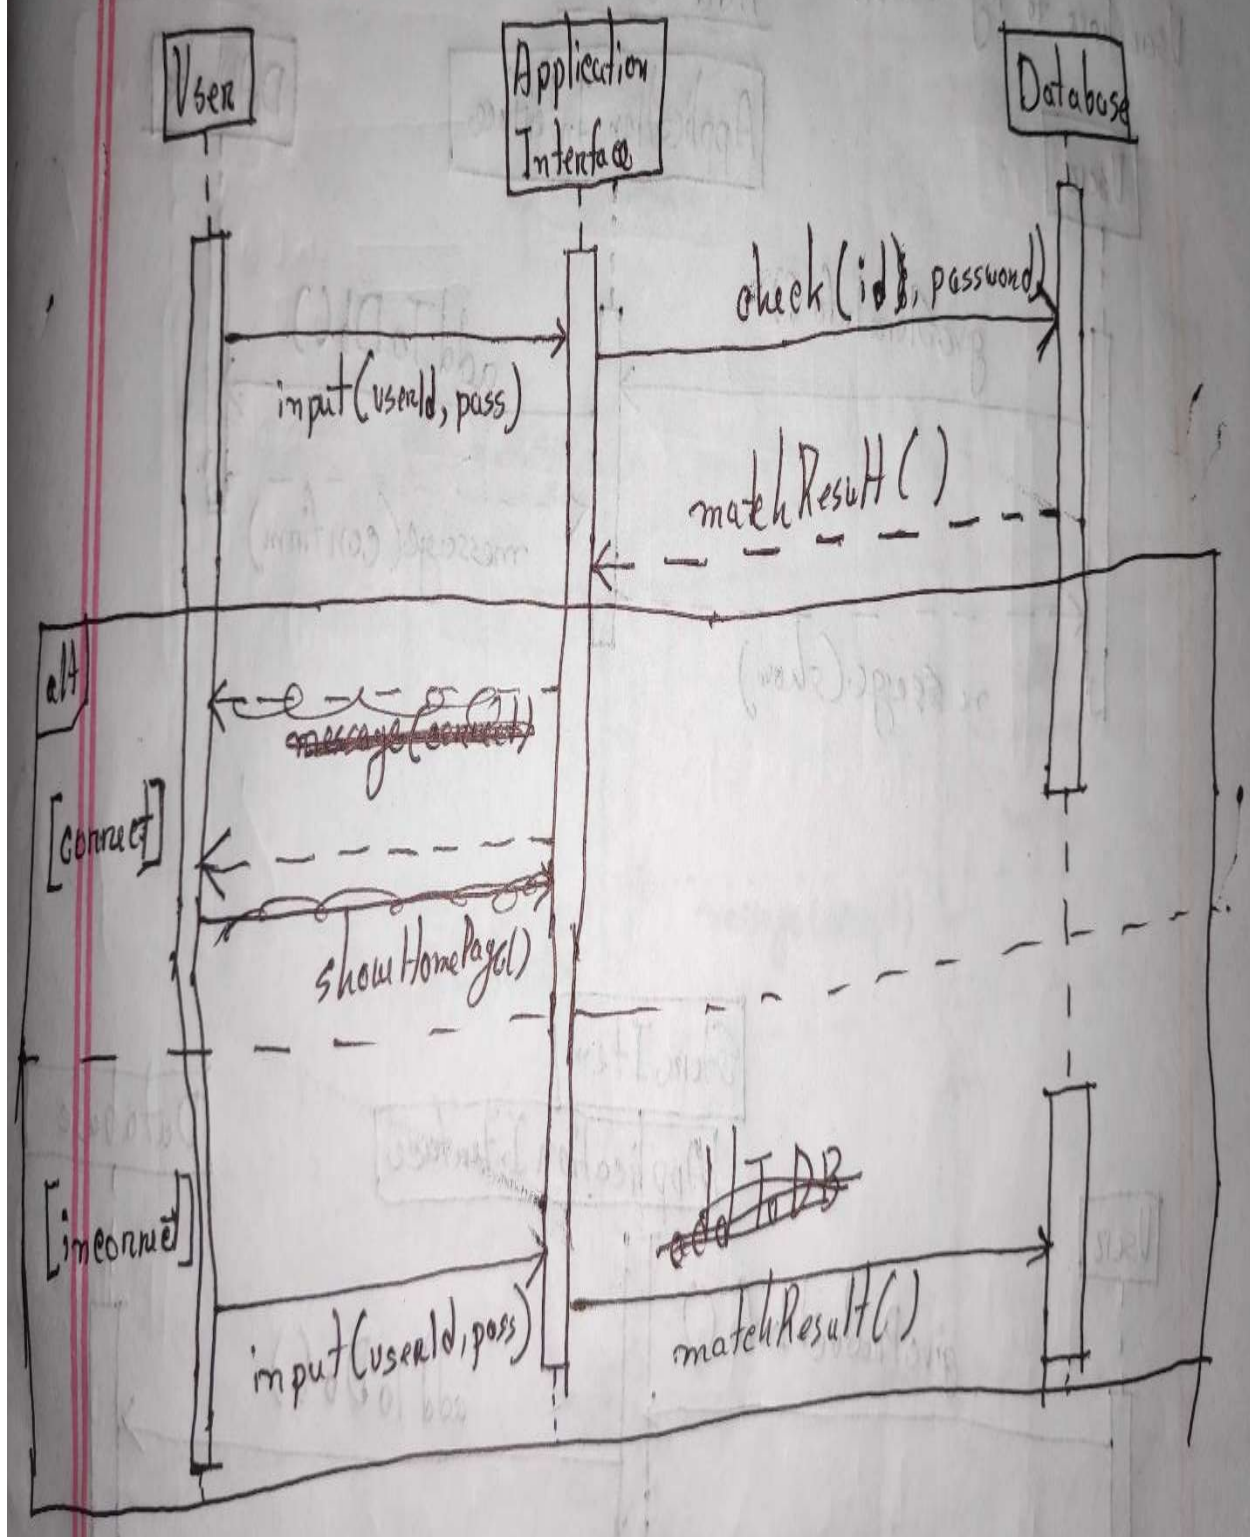 User
Application
Interface
Database
check(id, password)
input(userId, pass)
matchResult()
alt
message(correct)
[correct]
showHomePage()
addToDB
[incorrect]
input(userId, pass)
matchResult()